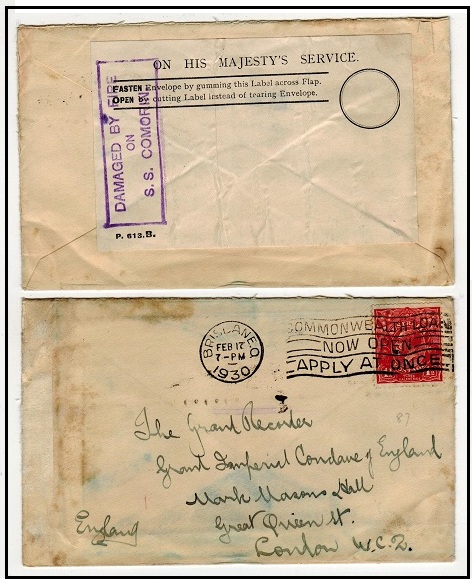 ON HIS MAJESTY'S SERVICE.
FASTEN Envelope by gumming this Label across Flap.
OPEN by cutting Label instead of tearing Envelope.
DAMAGED BY FIRE
ON
S.S. COMORIN
P. 613.B.
BRISBANE.Q
FEB 17
7-PM
1930
COMMONWEALTH LOAN
NOW OPEN
APPLY AT ONCE
87
The Grand Recorder
Grand Imperial Conclave of England
Mark Masons Hall
Great Queen St.
London W.C.2.
England